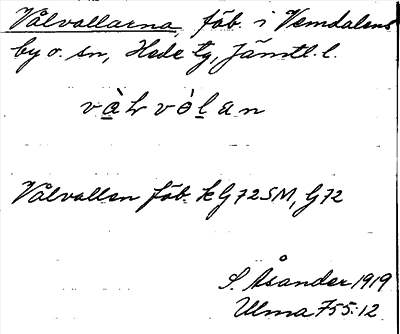 Vålvallarna, fäb. i Vemdalens
by o. sn, Hede tg, Jämtl. l.
Vålvallen fäb. k G72SM, G72
S. Åsander 1919
Ulma 755:12